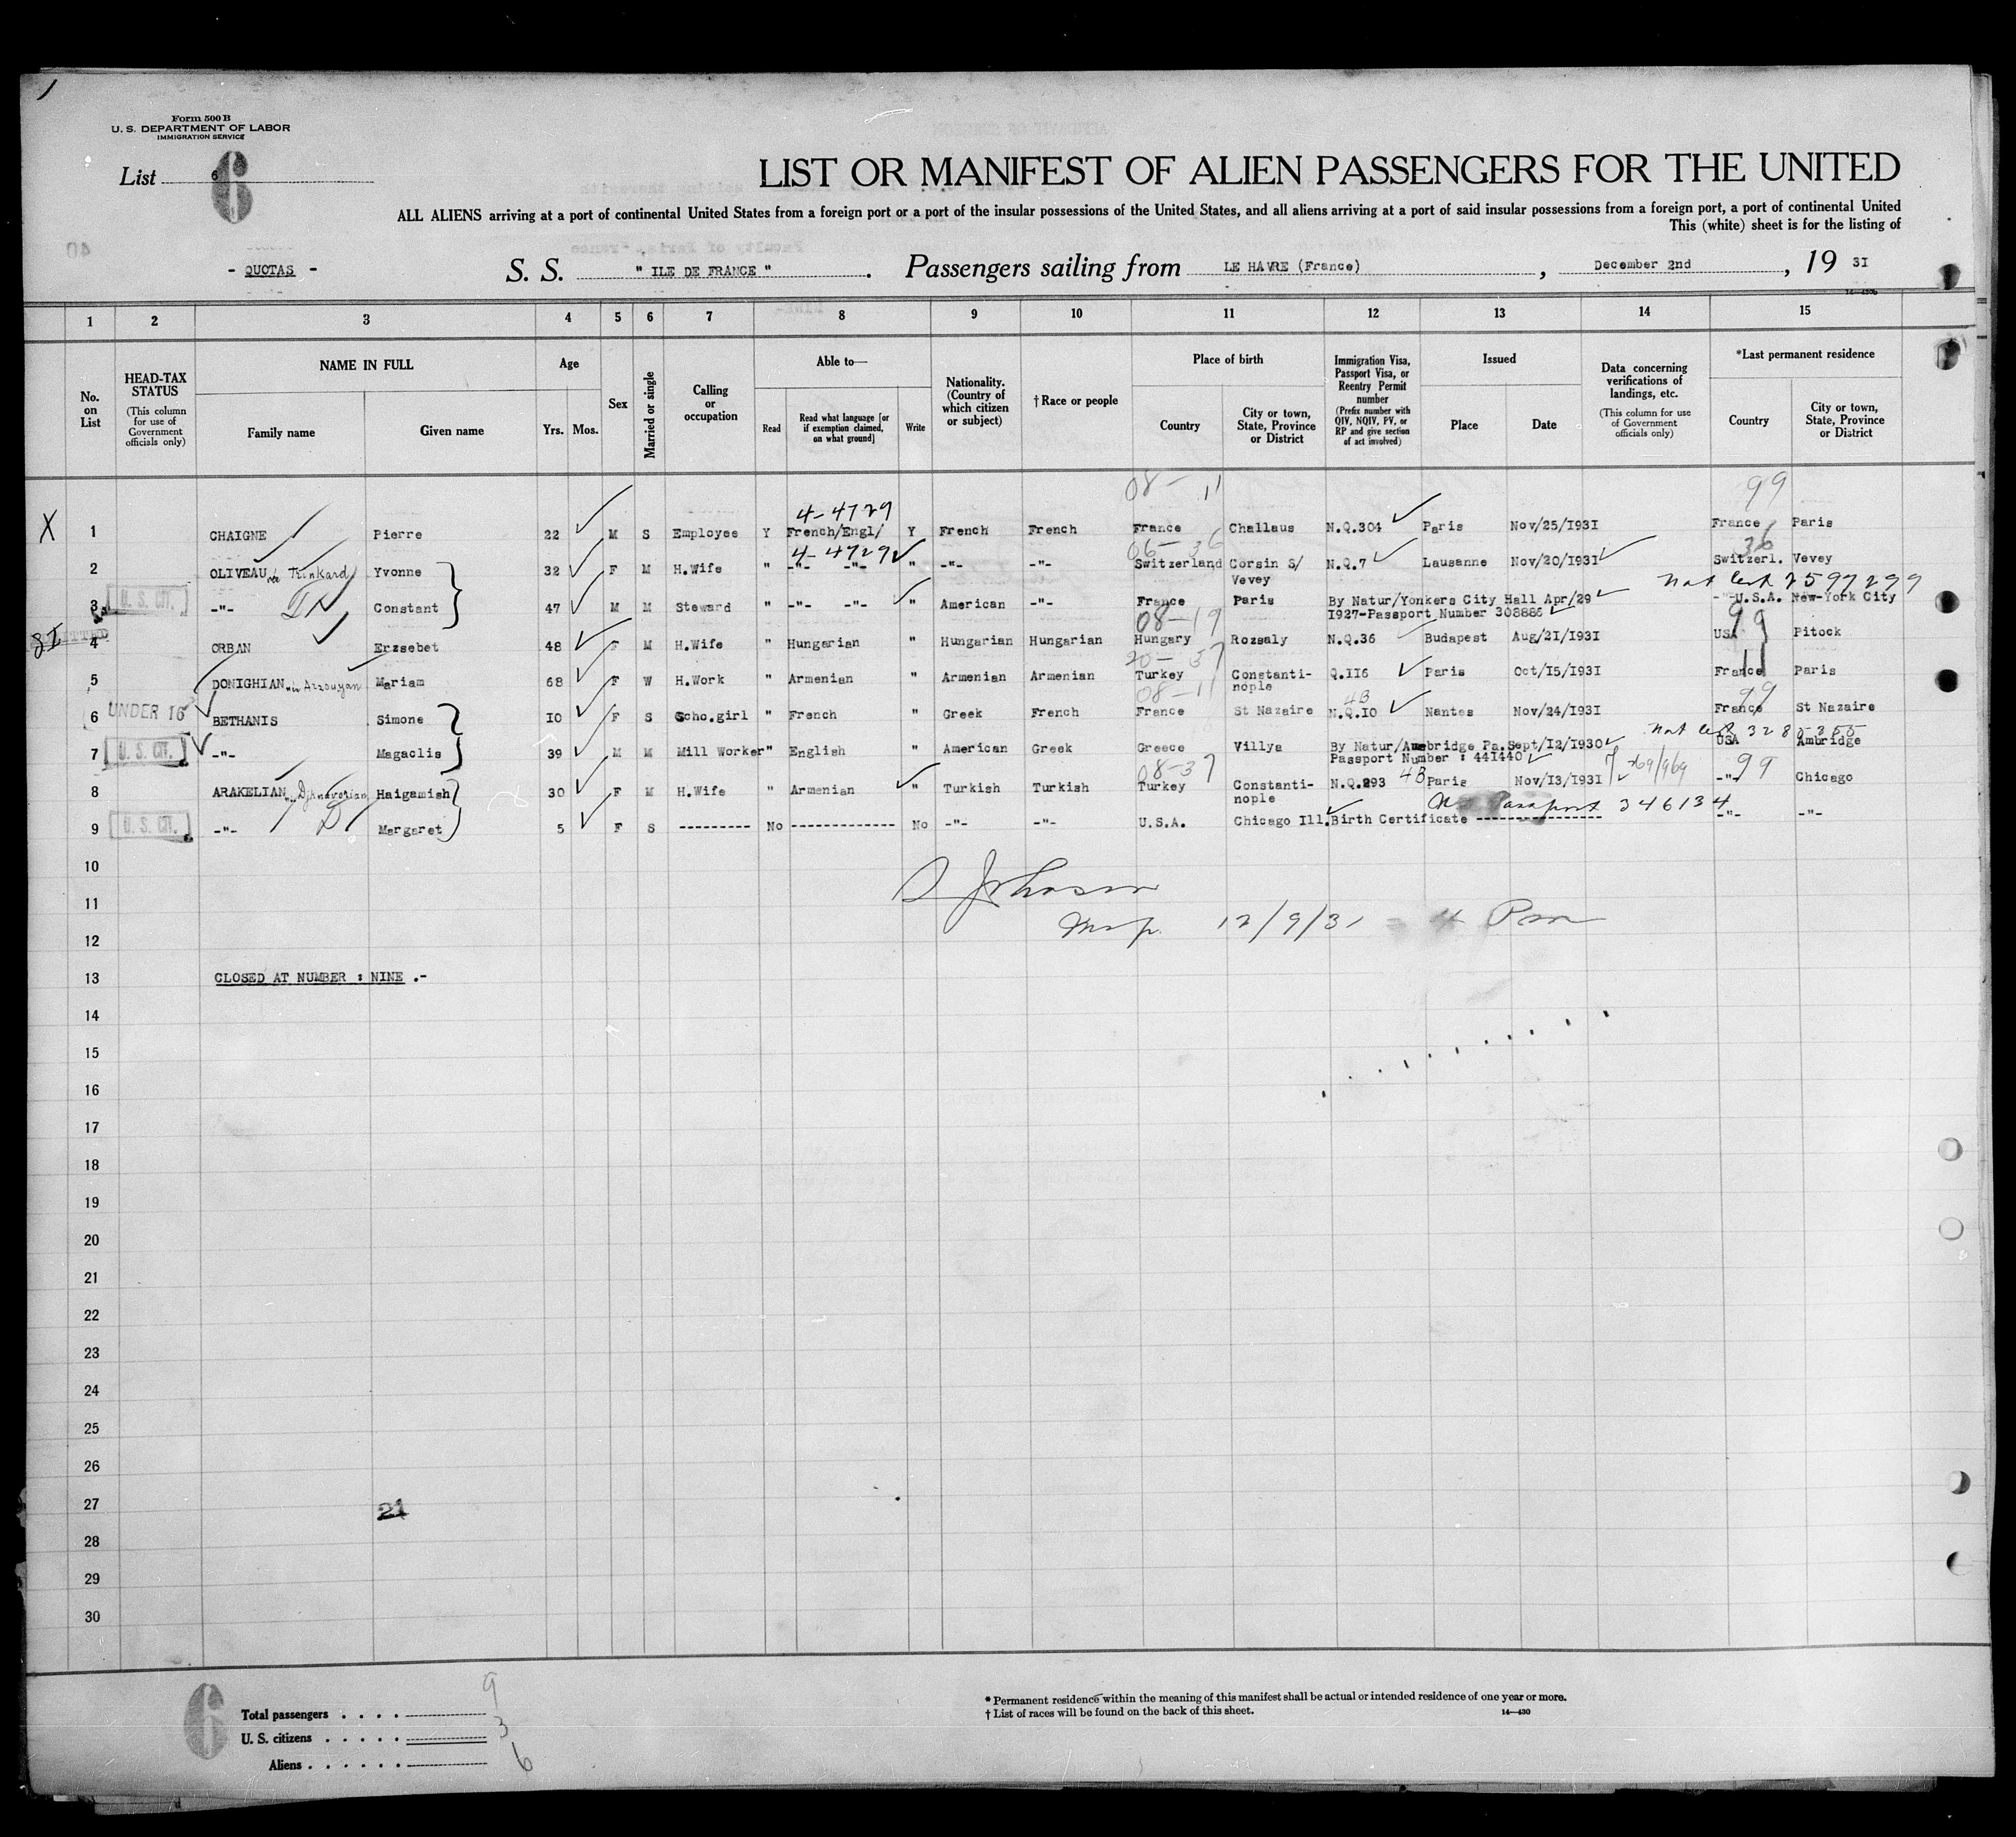 Form 500 B
U. S. DEPARTMENT OF LABOR
IMMIGRATION SERVICE
List 6
6
LIST OR MANIFEST OF ALIEN PASSENGERS FOR THE UNITED
ALL ALIENS arriving at a port of continental United States from a foreign port or a port of the insular possessions of the United States, and all aliens arriving at a port of said insular possessions from a foreign port, a port of continental United
This (white) sheet is for the listing of
- QUOTAS - S. S. " ILE DE FRANCE " . Passengers sailing from LE HAVRE (France) , December 2nd , 19 3I
1 2 3 4 5 6 7 8 9 10 11 12 13 14 15
No. on List
HEAD-TAX STATUS (This column for use of Government officials only)
NAME IN FULL
Family name Given name
Age
Yrs. Mos.
Sex
Married or single
Calling or occupation
Able to—
Read Read what language [or if exemption claimed, on what ground] Write
Nationality. (Country of which citizen or subject)
†Race or people
Place of birth
Country City or town, State, Province or District
Immigration Visa, Passport Visa, or Reentry Permit number (Prefix number with QIV, NQIV, PV, or RP and give section of act involved)
Issued
Place Date
Data concerning verifications of landings, etc. (This column for use of Government officials only)
*Last permanent residence
Country City or town, State, Province or District
08- 11 99
4-4729
X 1 CHAIGNE Pierre 22 M S Employee Y French/Engl/ Y French French France Challaus N.Q.304 Paris Nov/25/I93I France Paris
4-4729 06- 36 36
2 OLIVEAU Yvonne 32 F M H.Wife " -"- -"- " -"- -"- Switzerland Corsin S/ Vevey N.Q.7 Lausanne Nov/20/I93I Switzerl. Vevey
Nat Cert 2597299
U. S. CIT. 3 -"- Constant 47 M M Steward " -"- -"- " American -"- France Paris By Natur/Yonkers City Hall Apr/29 -"-U.S.A. New-York City
I927-Passport Number 308886
08-19 99
SI 4 ORBAN Erzsebet 48 F M H.Wife " Hungarian " Hungarian Hungarian Hungary Rozsaly N.Q.36 Budapest Aug/2I/I93I USA Pitock
20- 37 11
5 DONIGHIAN Mariam 68 F W H.Work " Armenian " Armenian Armenian Turkey Constanti- nople Q.II6 Paris Oct/I5/I93I France Paris
08-11 4B 99
UNDER 16 6 BETHANIS Simone I0 F S Scho.girl " French " Greek French France St Nazaire N.Q.I0 Nantes Nov/24/I93I France St Nazaire
U. S. CIT. 7 -"- Magaclis 39 M M Mill Worker" English " American Greek Greece Villya By Natur/Ambridge Pa.Sept/I2/I930 USA Ambridge
Passport Number : 441440
08-37 4B 99
8 ARAKELIAN Haigamish 30 F M H.Wife " Armenian " Turkish Turkish Turkey Constanti- nople N.Q.293 Paris Nov/I3/I93I -"- Chicago
Passport 346134
U. S. CIT. 9 -"- Margaret 5 F S --------- No ------------- No -"- -"- U.S.A. Chicago Ill. Birth Certificate ---------------- -"- -"-
10
Johnson
11
12/9/31 - 4 Pm
12
13 CLOSED AT NUMBER : NINE .-
14
15
16
17
18
19
20
21
22
23
24
25
26
27 21
28
29
30
6
Total passengers . . . . 9
U. S. citizens . . . . . 3
Aliens . . . . . . 6
* Permanent residence within the meaning of this manifest shall be actual or intended residence of one year or more.
† List of races will be found on the back of this sheet.
14—430